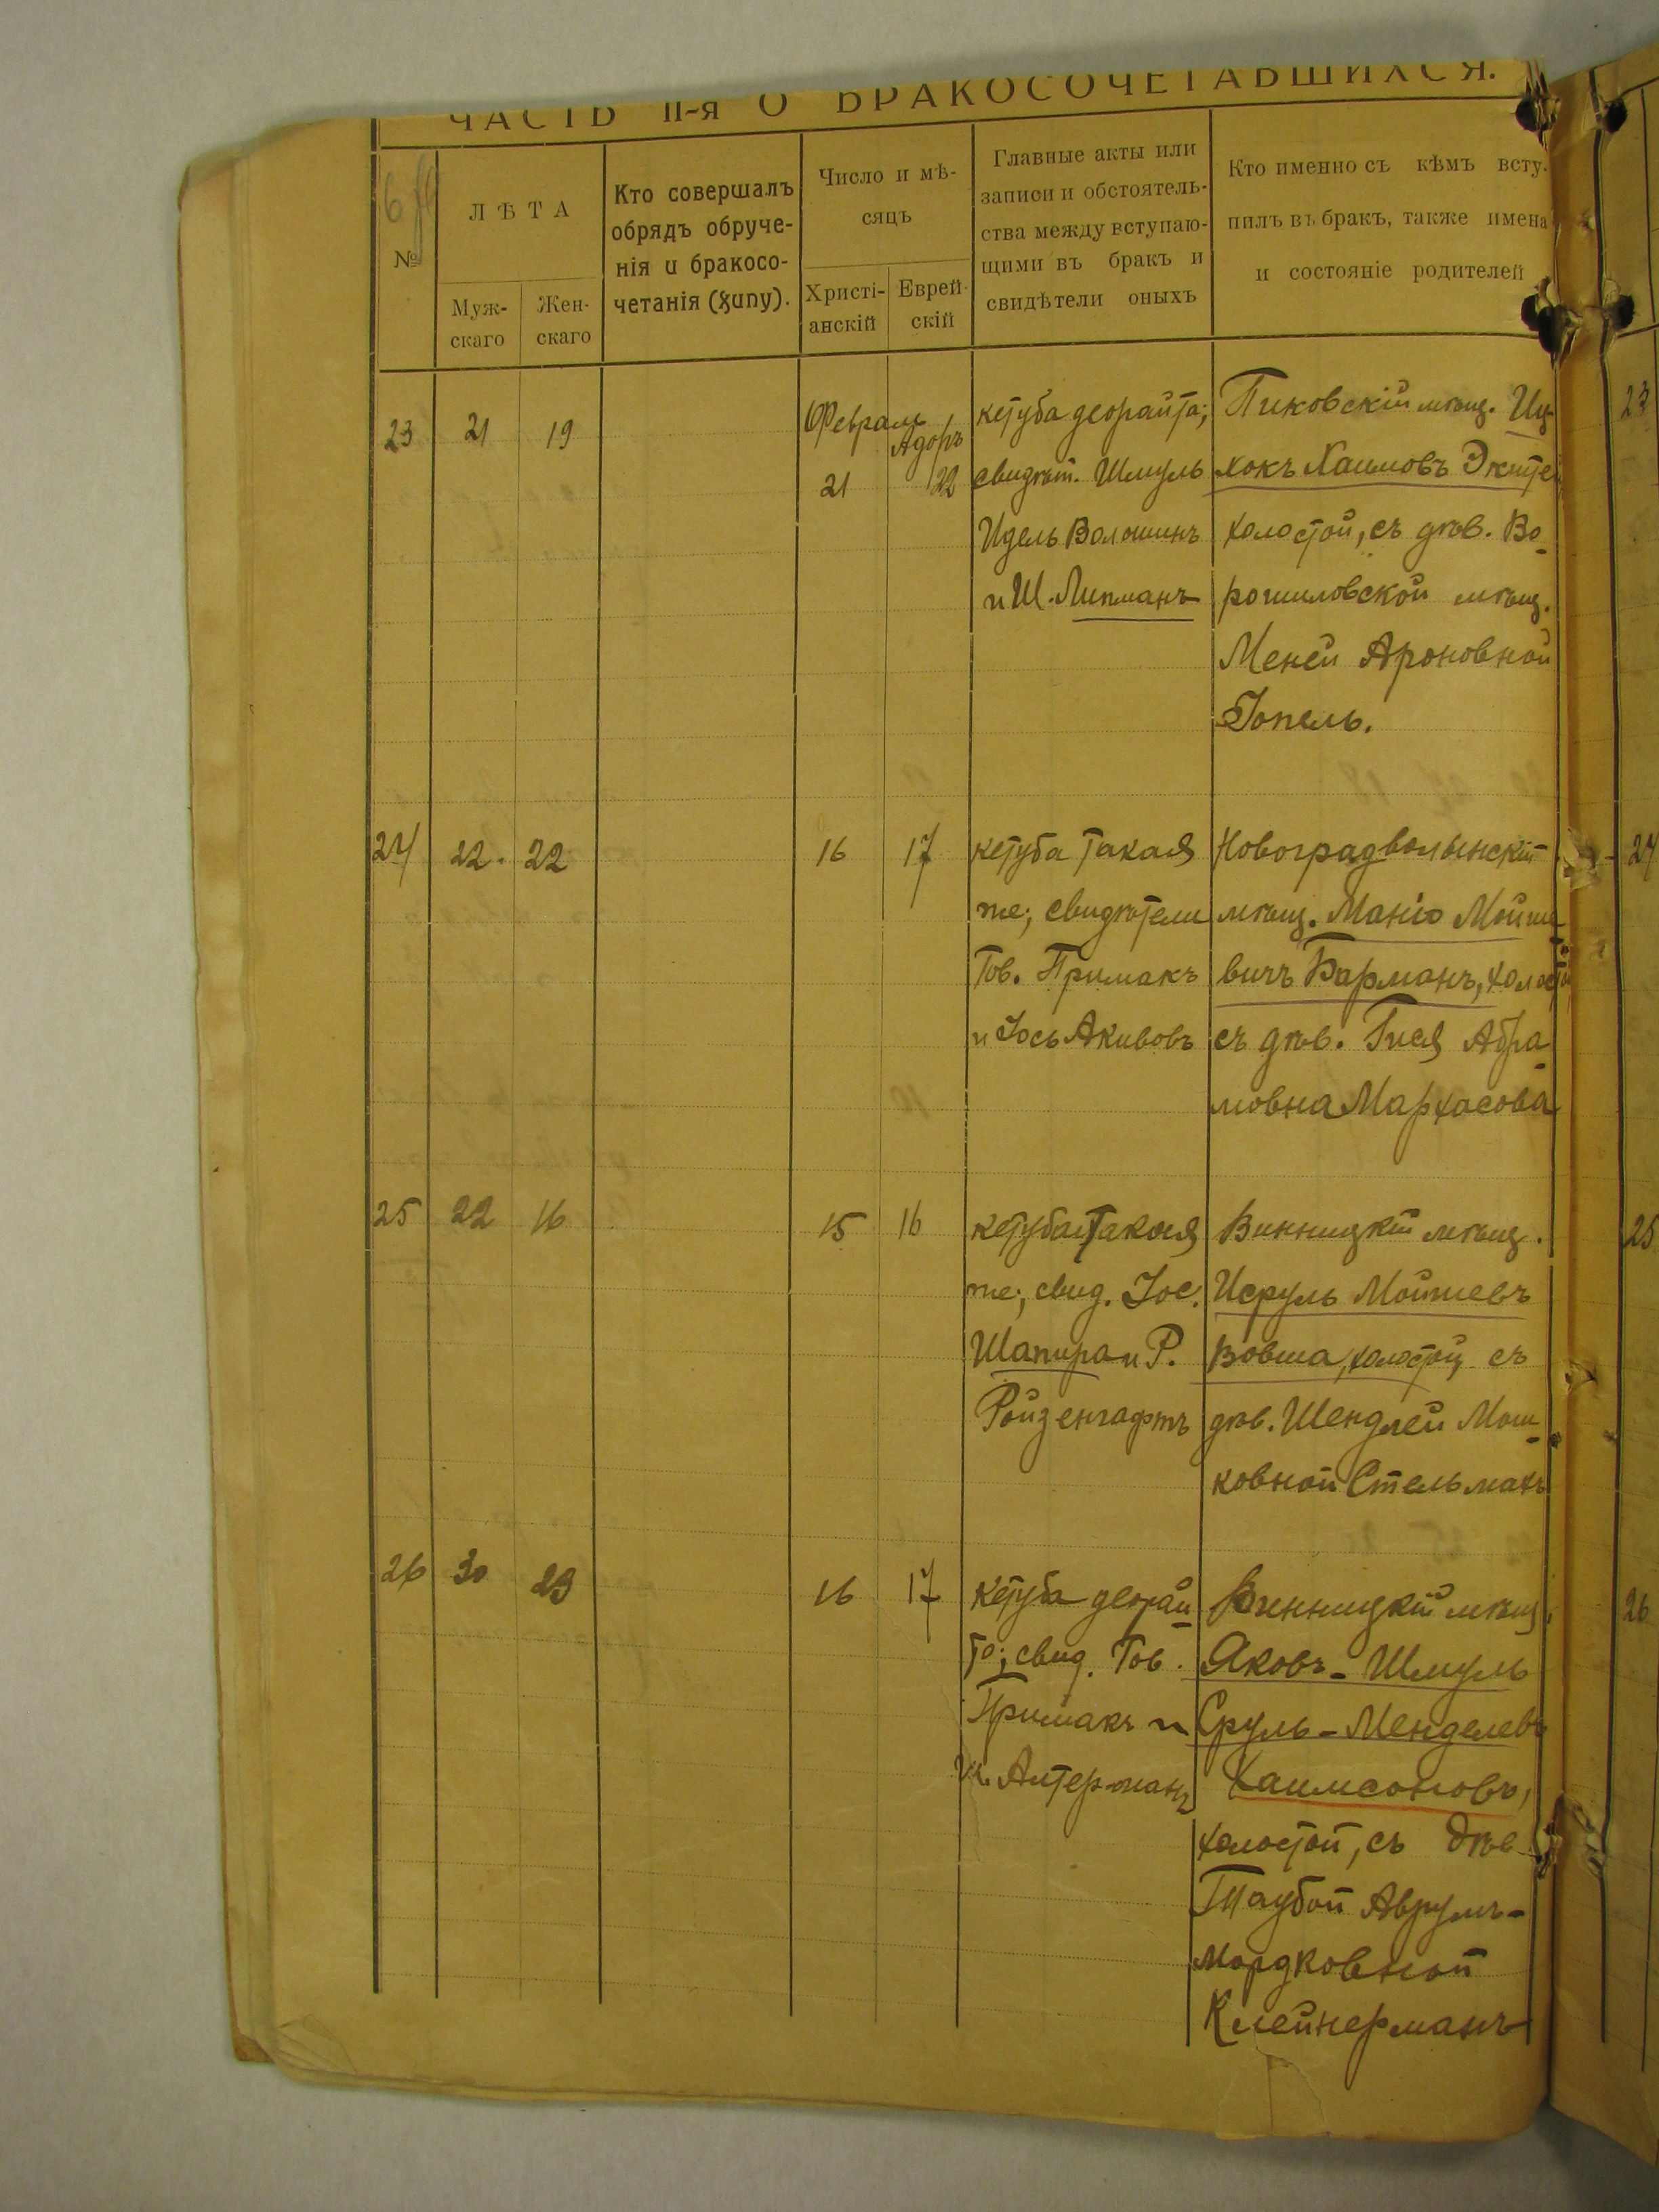 ЧАСТЬ II-я О БРАКОСОЧЕТАВШИХСЯ.
№
ЛѢТА
Муж-
скаго
Жен-
скаго
Кто совершалъ
обрядъ обруче-
нія и бракосо-
четанія (хупу).
Число и мѣ-
сяцъ
Христі-
анскій
Еврей-
скій
Главные акты или
записи и обстоятель-
ства между вступаю-
щими въ бракъ и
свидѣтели оныхъ
Кто именно съ кѣмъ всту-
пилъ въ бракъ, также имена
и состояніе родителей
23 21 19
Февраль Адоръ
21 22
кетуба деорайта;
свидѣт. Шмуль
Идель Волошинъ
и Ш. Липманъ
Пиковскій мѣщ. Иц-
хокъ Хаимовъ
холостой, съ дѣв. Во-
рошиловской мѣщ.
Меней Ароновной
Гопель.
23
24 22. 22 16 17
кетуба такая
же; свидѣтели
Тов. Примакъ
и Іось Акивовъ
Новоградволынскій
мѣщ. Маніо Мойше
вичъ Барманъ, холостой
съ дѣв. Гися Абра-
мовна Мархасова
24
25 22 16 15 16
кетуба такая
же; свид. Іос.
Шапира и Р.
Ройзенгафтъ
Винницкій мѣщ.
Исруль Мойшевъ
Вовша, холостой, съ
дѣв. Шендлей Мош-
ковной Стельмахъ
25
26 30 23 16 17
кетуба деорай-
та; свид. Тов.
Примакъ и
Альтерманъ
Винницкій мѣщ.
Яковъ-Шмуль
Сруль-Менделевъ
Хаимсоновъ,
холостой, съ дѣв.
Таубой Аврумъ-
Мордковной
Клейнерманъ
26